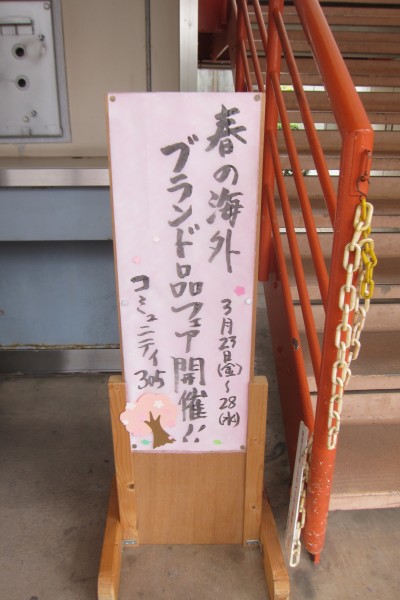 春の海外
ブランド品フェア開催!!
3月23日(金)~28(水)
コミュニティ305